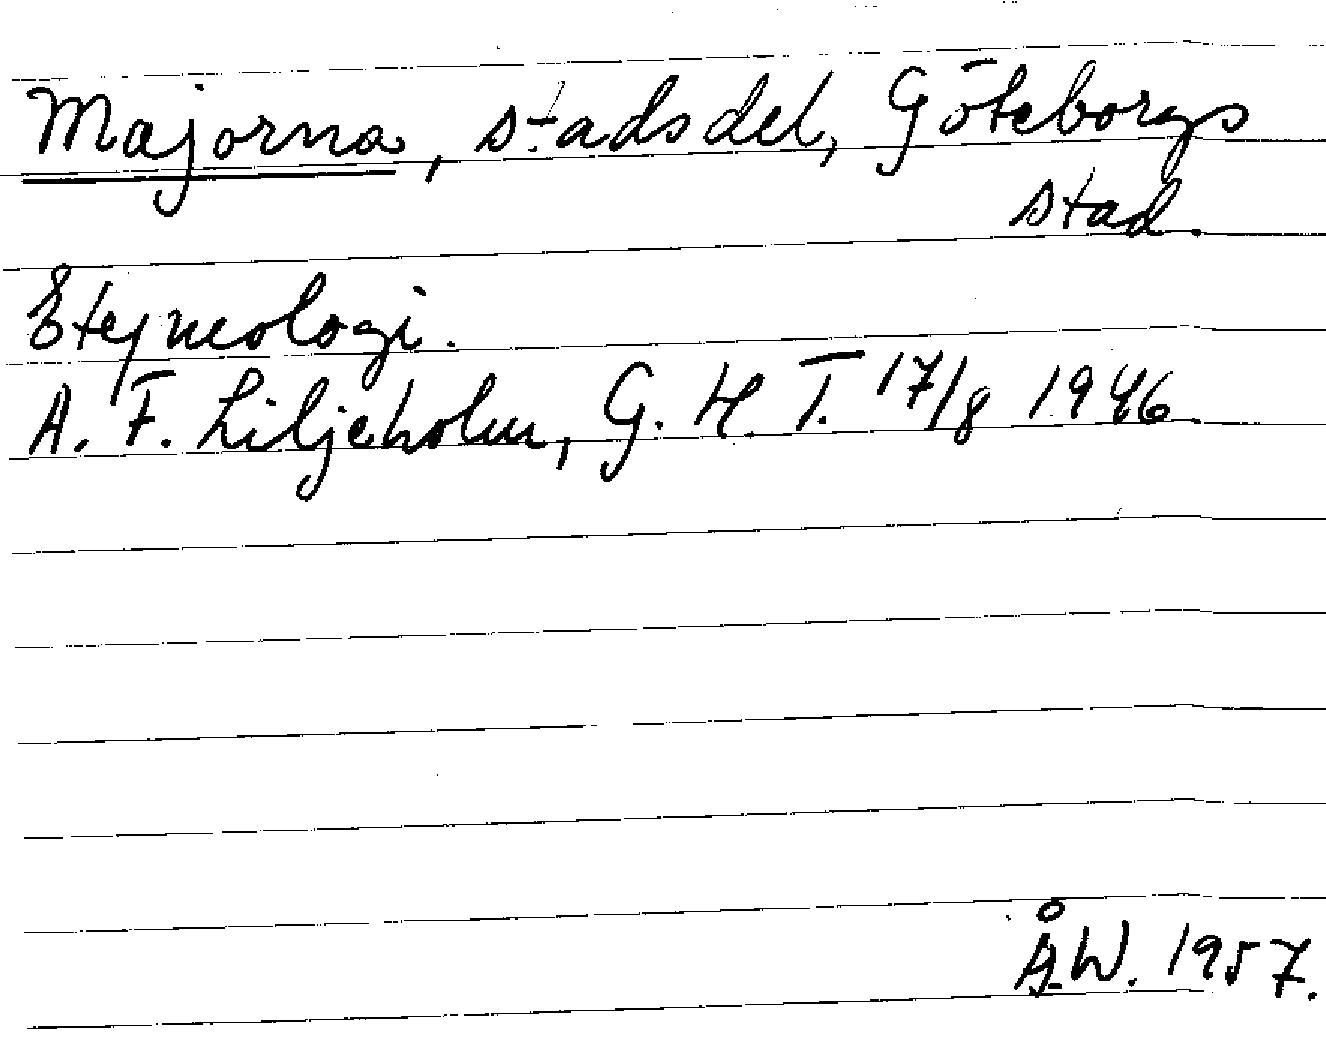 Majorna, stadsdel, Göteborgs
stad.
Etymologi.
A. F. Liljeholm, G. H. T. 17/8 1946
ÅW. 1957.